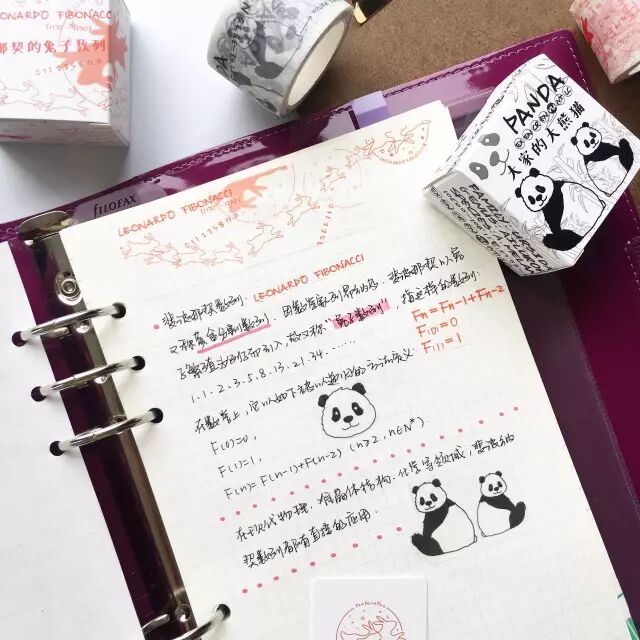 LEONARDO FIBONACCI
那契的兔子数列
PANDA
大家的大熊猫
FILOFAX
LEONARDO FIBONACCI
LEONARDO FIBONACCI
斐波那契数列: LEONARDO FIBONACCI
又称黄金分割数列、因数学家列昂纳多·斐波那契以兔
子繁殖为例而引入,故又称"兔子数列",指这样的数列:
1.1.2.3.5.8.13.21.34......
Fn=Fn-1+Fn-2
F(0)=0
F(1)=1
在数学上,它以如下被以递归的方法定义:
F(0)=0,
F(1)=1,
F(n)=F(n-1)+F(n-2) (n≥2,n∈N*).
在现代物理、准晶体结构、化学等领域,斐波纳
契数列都有直接的应用.